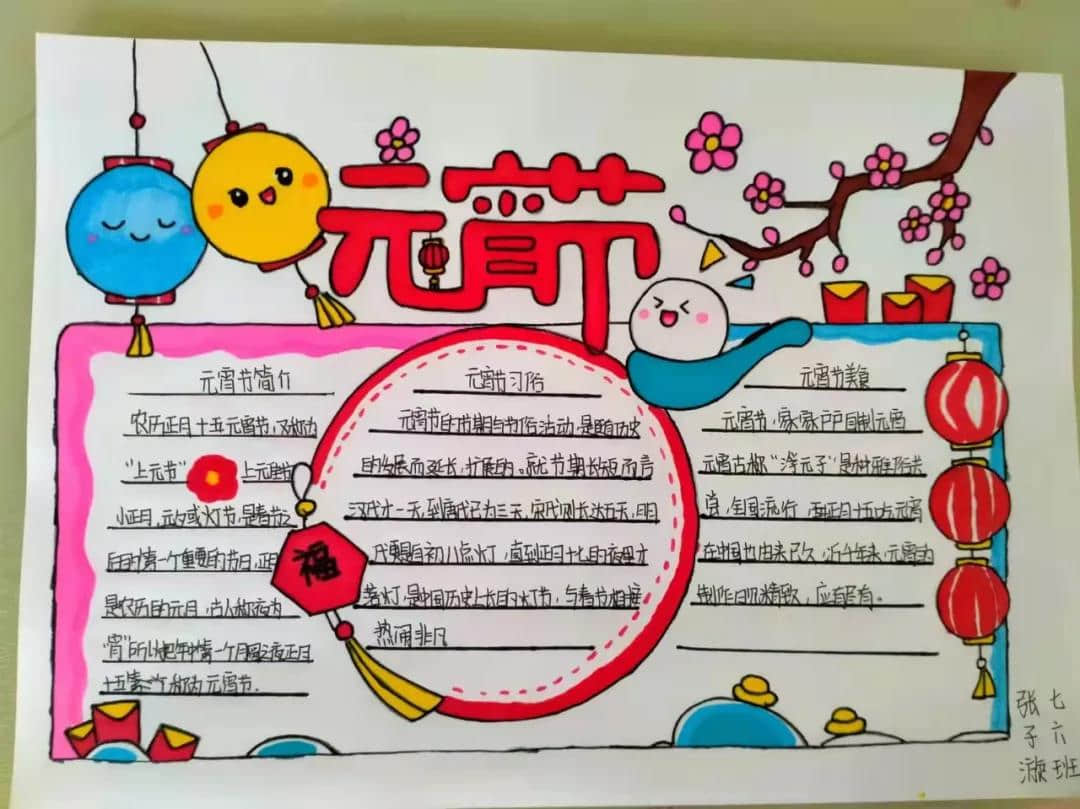 元宵节
元宵节简介
农历正月十五元宵节,又称为
"上元节" 上元佳节
小正月,元夕或灯节,是春节之
后的第一个重要的节日,正月
是农历的元月,古人称夜为
"宵"所以把年中第一个月圆之夜正月
十五 称为元宵节.
福
元宵节习俗
元宵节的节期与节俗活动,是随历史
的发展而延长,扩展的。就节期长短而言
汉代才一天,到唐代已为三天,宋代则长达五天,明
代更是自初八点灯,直到正月十七的夜里才
落灯,是中国历史上长的灯节,与春节相接
热闹非凡
元宵节美食
元宵节,家家户户自制元宵
元宵古称"浮元子"是种雅俗共
赏,全国流行 正月十五吃元宵
在中国也由来已久,近千年来,元宵的
制作日见精致,应有尽有。
七六班
张子漩